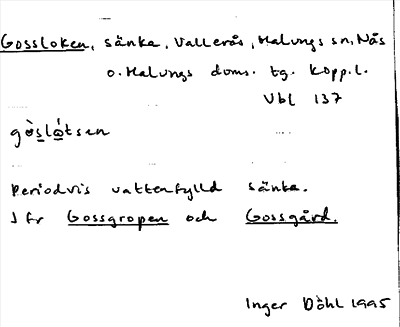 Gossloken, sänka, Vallerås, Malungs sn, Nås
o. Malungs doms. tg. Kopp.l.
Vbl 137
gòslótsen
Periodvis vattenfylld sänka.
Jfr Gossgropen och Gossgård.
Inger Döhl 1995